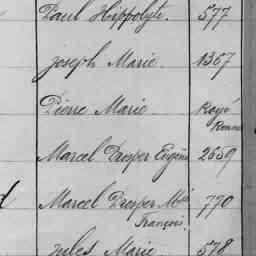 Paul Hippolyte. 577
Joseph Marie. 1367
Pierre Marie Rayé
Marcel Prosper Eugène 2659
d Marcel Prosper Mie 770
François.
Jules Marie 578